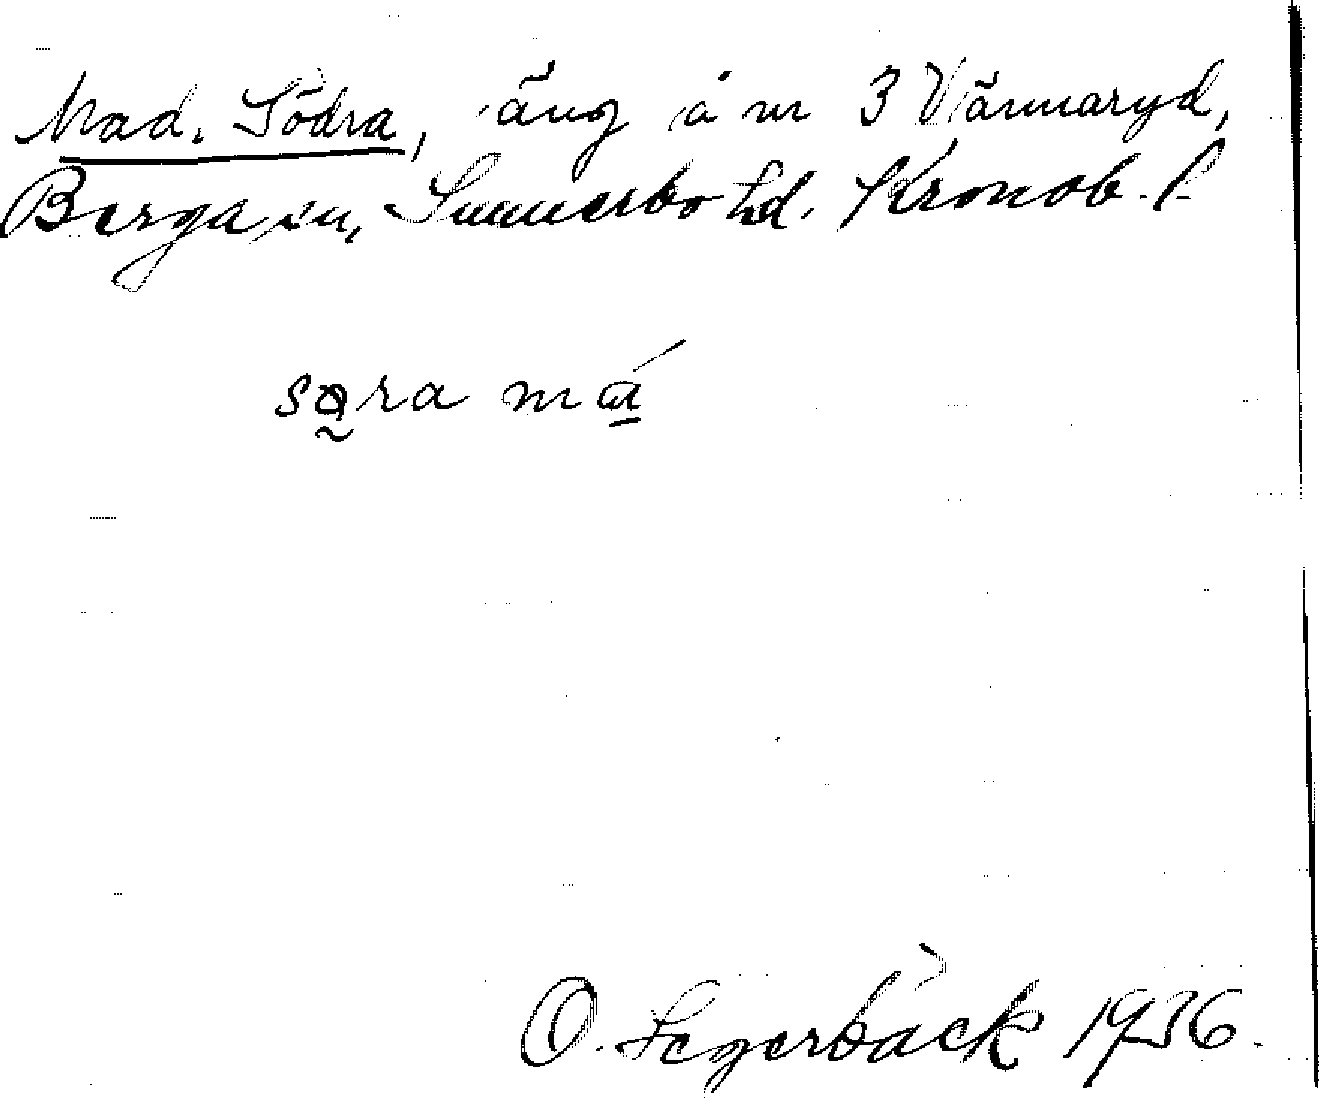 Mad, Södra, äng å nr 3 Vännaryd,
Berga sn, Sunnerbo hd. Kronob. l.
sǫ̰ra má̱
O. Segerbäck 1936.